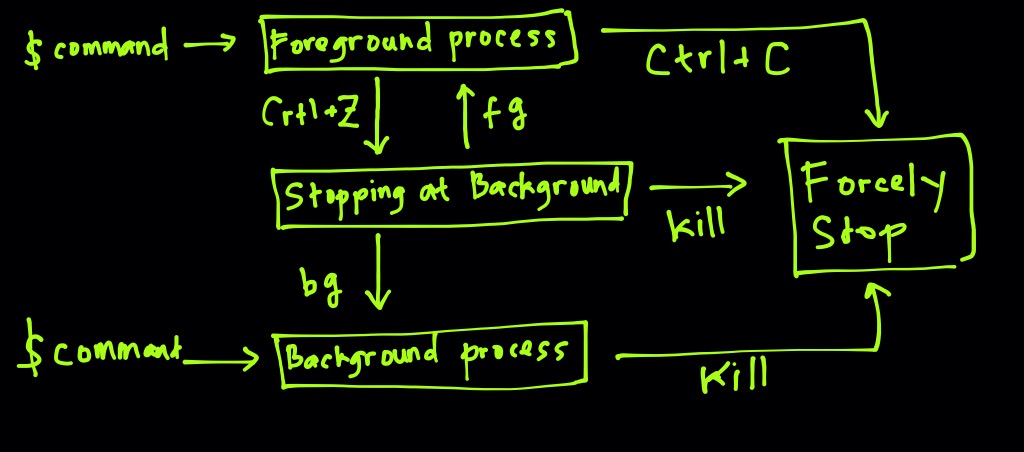 $ command
Foreground process
Ctrl+C
Crtl+Z
fg
Stopping at Background
kill
Forcely
Stop
bg
$ command
Background process
Kill